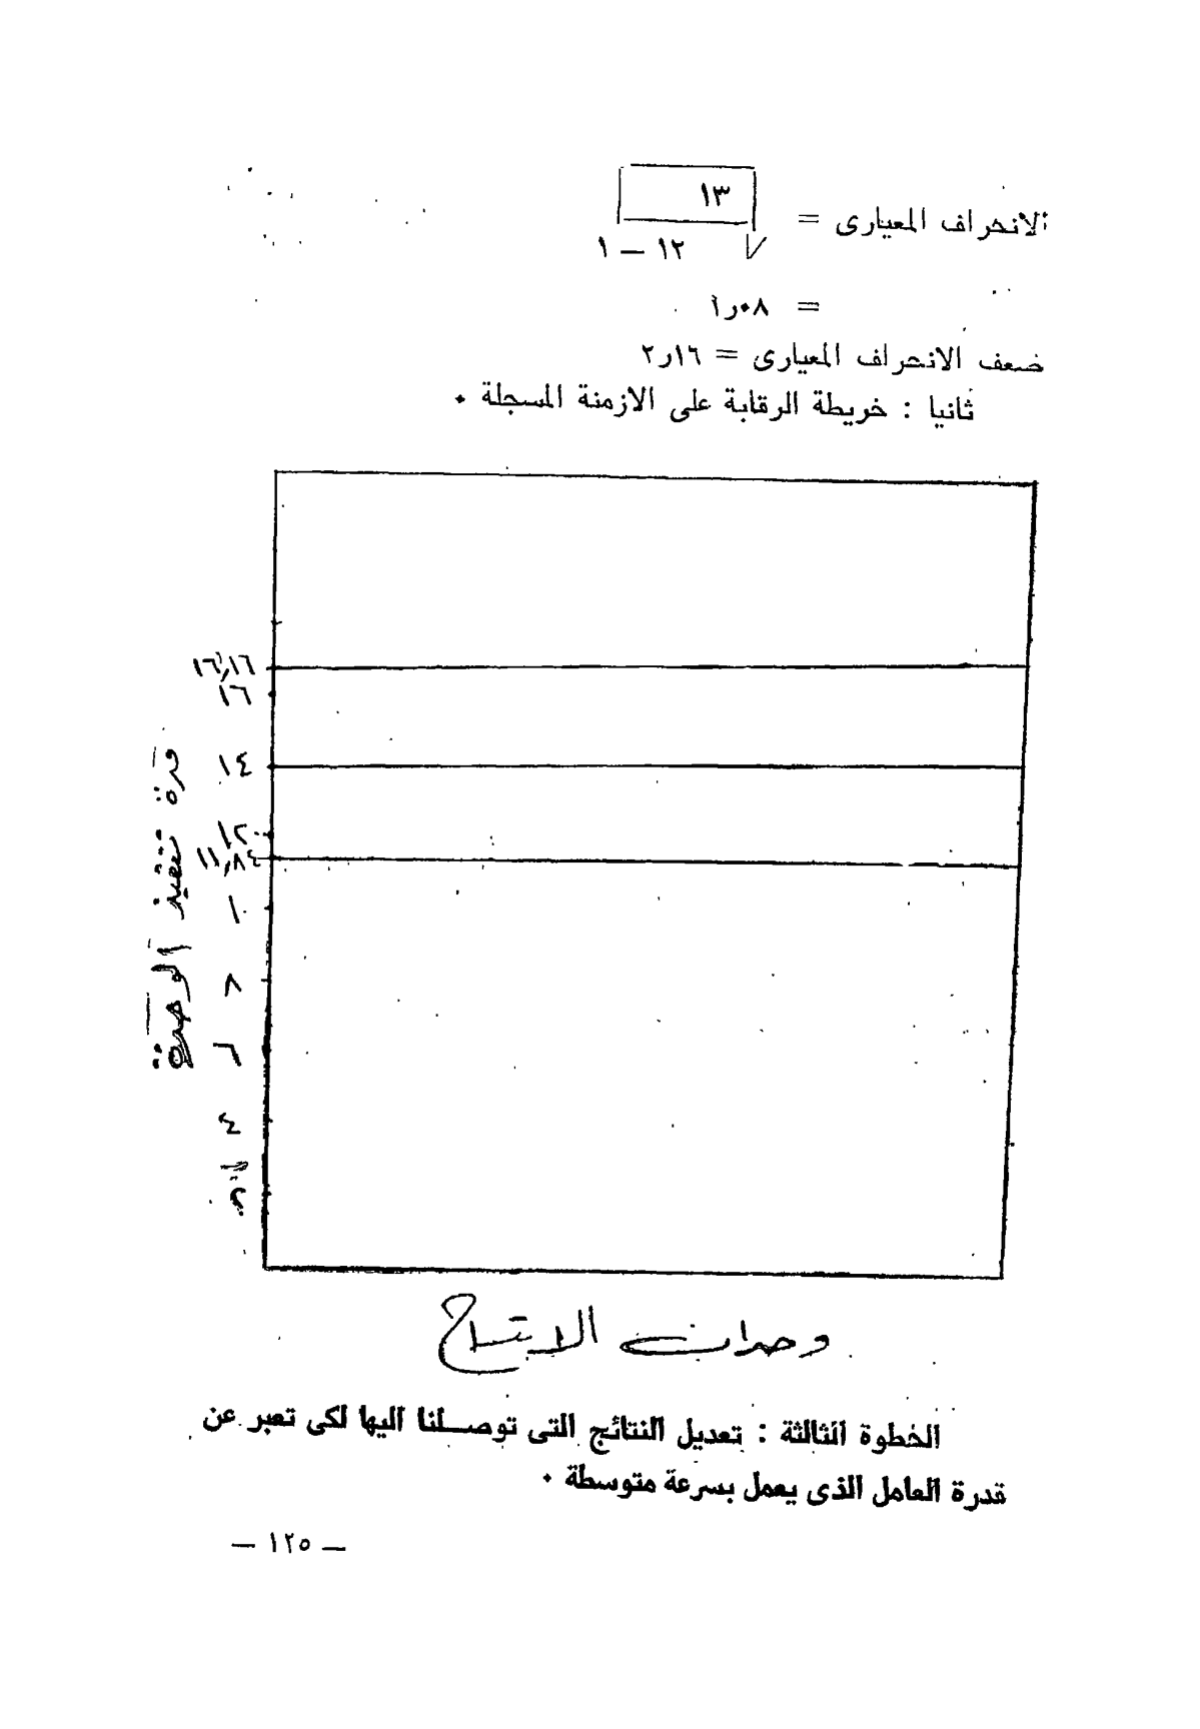 الانحراف المعيارى = ١٣
١٢ — ١
= ١٫٠٨
ضعف الانحراف المعيارى = ٢٫١٦
ثانيا : خريطة الرقابة على الازمنة المسجلة .
١٦,١٦
١٦
١٤
١٢
١١,٨٤
١٠
٨
٦
٤
٢
تنفيذ الوحدة
وحدات الانتاج
الخطوة الثالثة : تعديل النتائج التى توصلنا اليها لكى تعبر عن
قدرة العامل الذى يعمل بسرعة متوسطة .
— ١٢٥ —